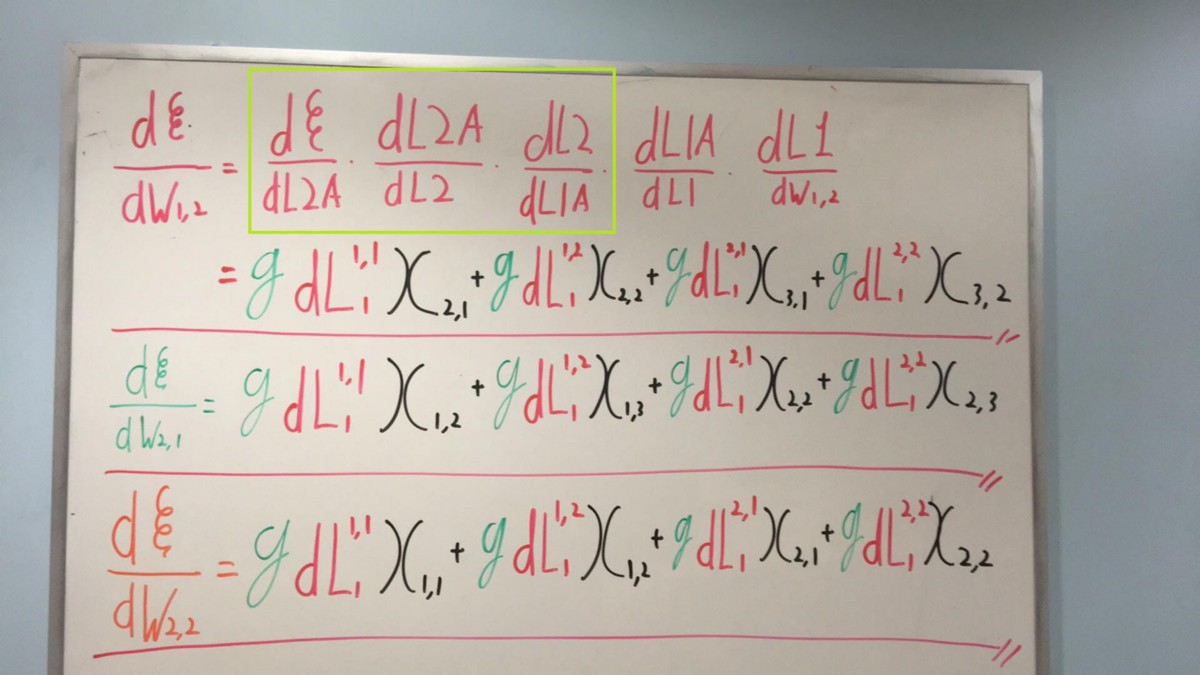 dξ/dW₁,₂ = dξ/dL2A · dL2A/dL2 · dL2/dL1A · dL1A/dL1 · dL1/dW₁,₂
= g dL₁¹,¹ X₂,₁ + g dL₁¹,² X₂,₂ + g dL₁²,¹ X₃,₁ + g dL₁²,² X₃,₂
dξ/dW₂,₁ = g dL₁¹,¹ X₁,₂ + g dL₁¹,² X₁,₃ + g dL₁²,¹ X₂,₂ + g dL₁²,² X₂,₃
dξ/dW₂,₂ = g dL₁¹,¹ X₁,₁ + g dL₁¹,² X₁,₂ + g dL₁²,¹ X₂,₁ + g dL₁²,² X₂,₂